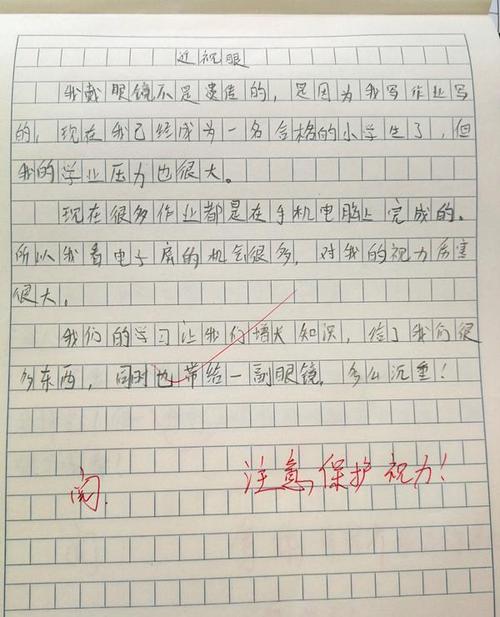 近视眼
我戴眼镜不是遗传的，是因为我写作业写
的，现在我已经成为一名合格的小学生了，但
我的学业压力也很大。
现在很多作业都是在手机电脑上完成的。
所以我看电子屏的机气很多，对我的视力厉害
很大。
我们的学习让我们增长知识，给了我们很
多东西，同时也带给一副眼镜，多么沉重！
阅.
注意，保护视力！